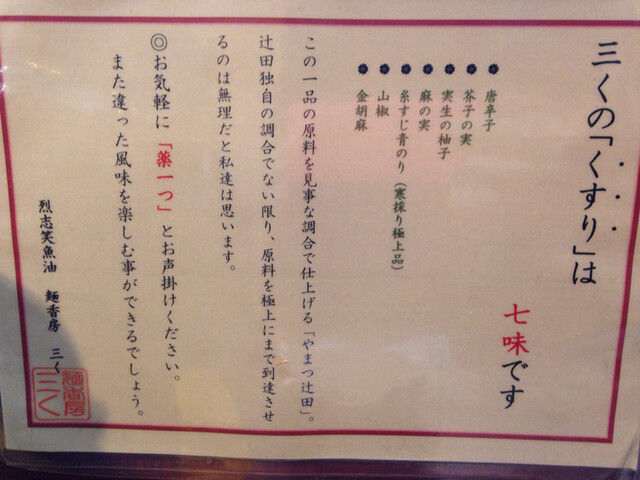 三くの「くすり」は
七味です
唐辛子
芥子の実
実生の柚子
麻の実
糸すじ青のり（寒採り極上品）
山椒
金胡麻
この一品の原料を見事な調合で仕上げる「やまつ辻田」。
辻田独自の調合でない限り、原料を極上にまで到達させ
るのは無理だと私達は思います。
◎お気軽に「薬一つ」とお声掛けください。
また違った風味を楽しむ事ができるでしょう。
烈志笑魚油　麺香房　三く
麺香房
三く